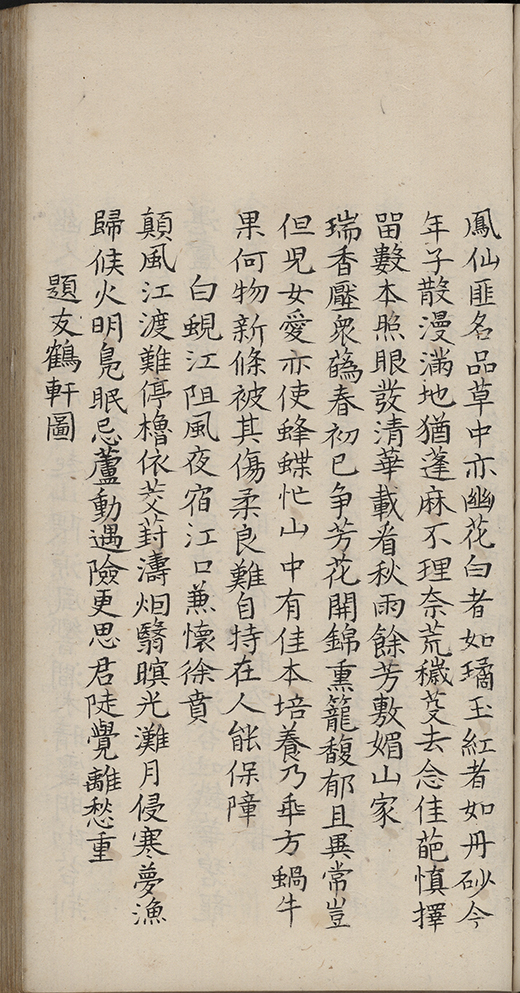 鳳仙匪名品草中亦幽花白者如璚玉紅者如丹砂今
年子散漫滿地猶蓬麻不理奈荒穢芟去念佳葩慎擇
畱數本照眼發清華載看秋雨餘芳敷媚山家
瑞香壓衆蘤春初已争芳花開錦熏籠馥郁且異常豈
但児女愛亦使蜂蝶忙山中有佳本培養乃乖方蝸牛
果何物新條被其傷柔良難自持在人能保障
白蜆江阻風夜宿江口兼懷徐賁
顛風江渡難停櫓依茭葑濤烟翳暝光灘月侵寒夢漁
歸候火明鳧眠忌蘆動遇險更思君陡覺離愁重
題友鶴軒圖